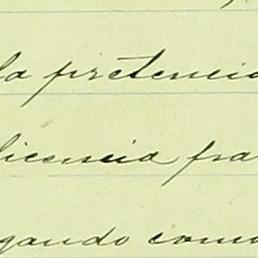 la pretencia
licencia pa
gando como